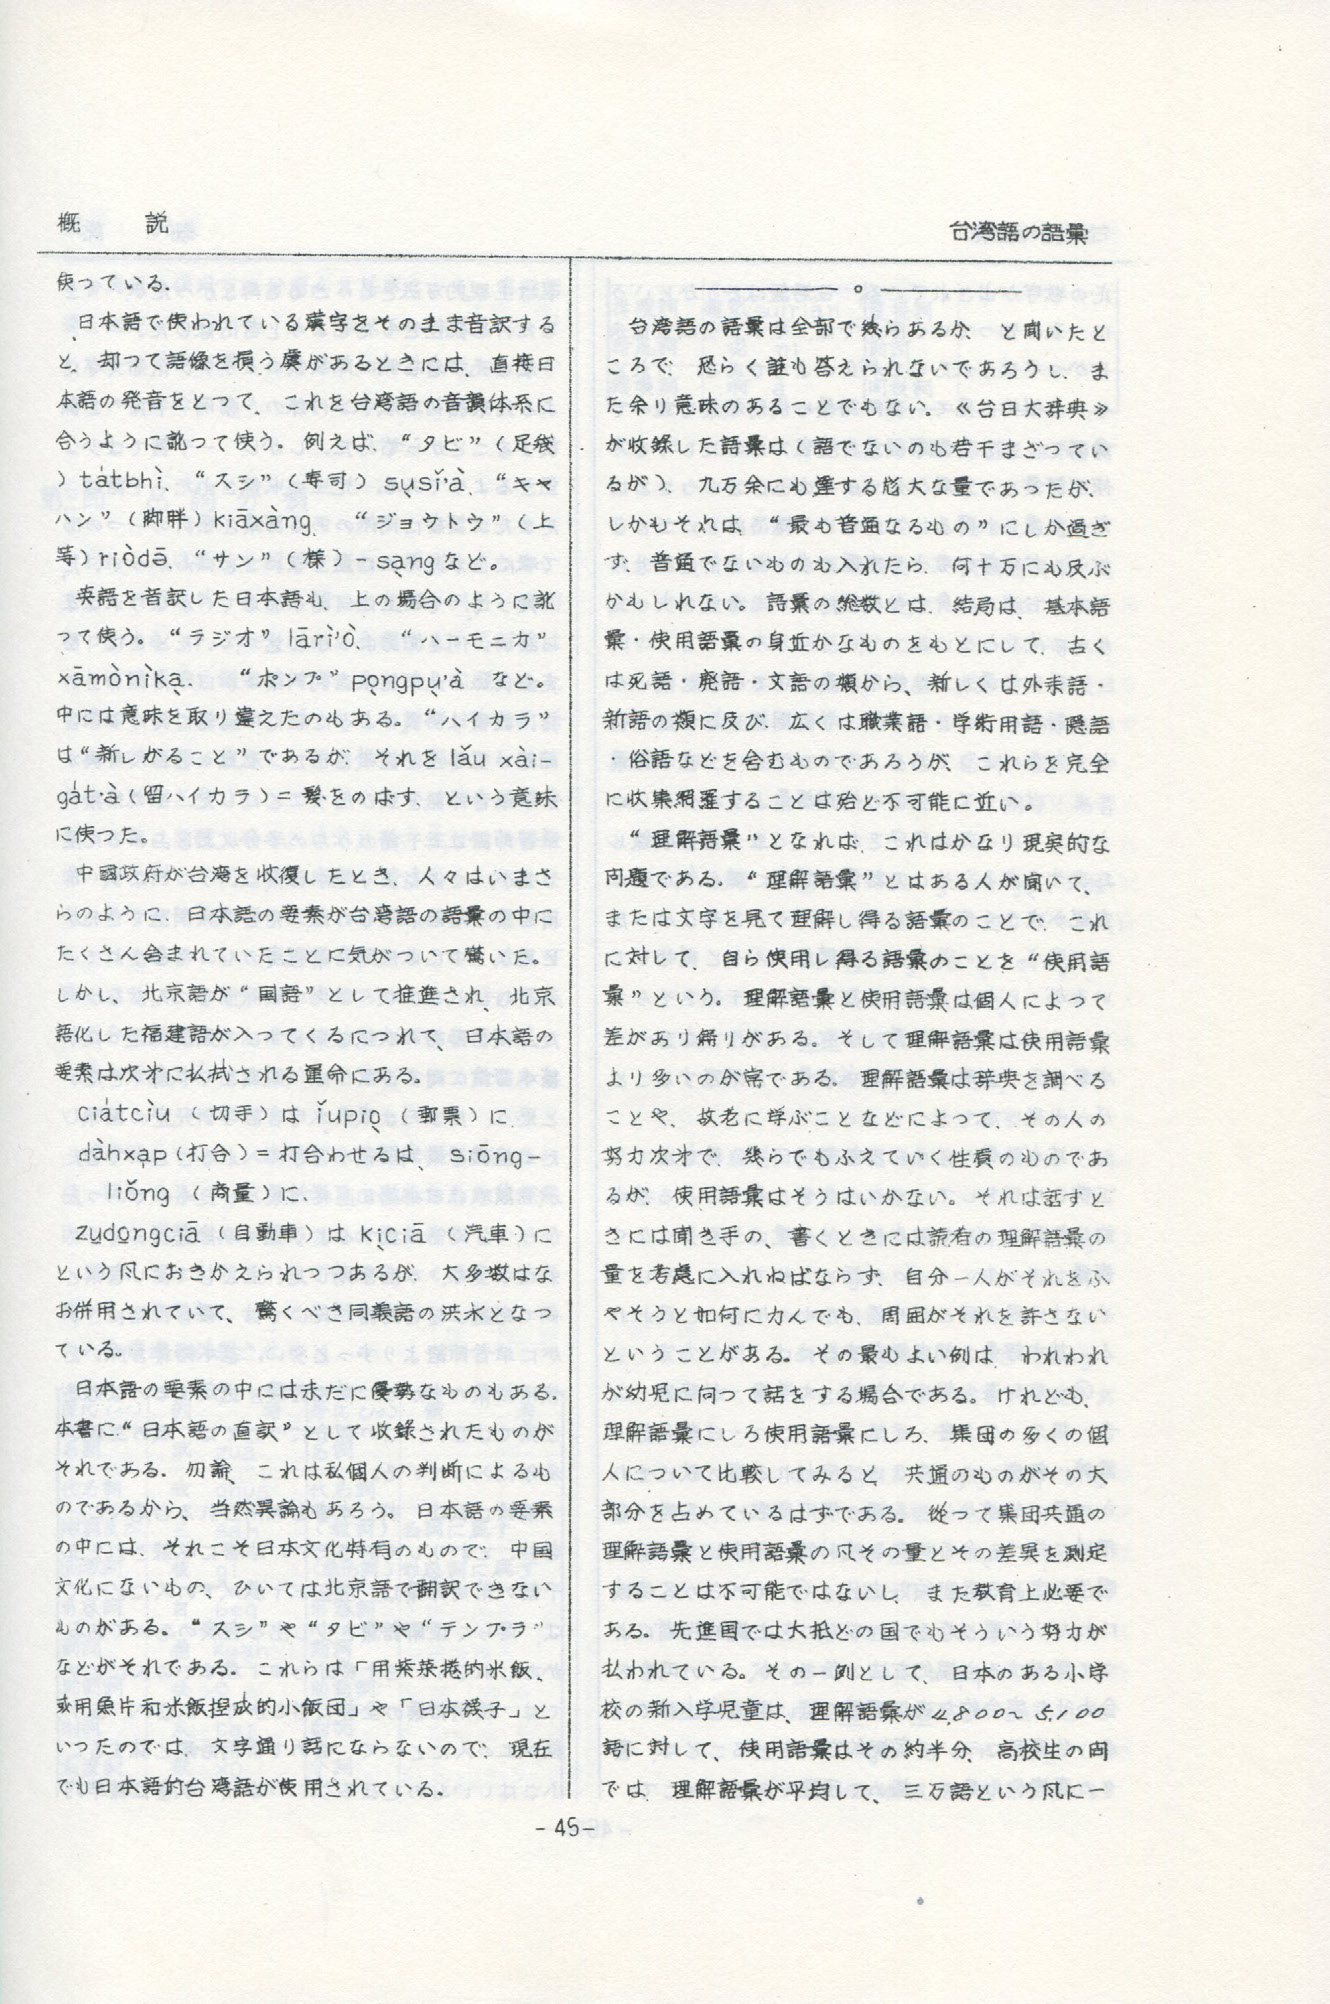 概　説
台湾語の語彙
使っている.
日本語で使われている漢字をそのまま音訳する
と, 却つて語像を損う虞があるときには, 直接日
本語の発音をとつて, これを台湾語の音韻体系に
合うように訛って使う。例えば, “タビ”（足袋
）tátbhì, “スシ”（寿司）sụsǐ'à, “キャ
ハン”（脚胖）kiāxàng, “ジョウトウ”（上
等）riòdō, “サン”（様）-sạngなど。
英語を音訳した日本語も, 上の場合のように訛
って使う。“ラジオ” lārì'ò, “ハーモニカ”
xāmònìkạ, “ポンプ” pọngpụ'à など。
中には意味を取り違えたのもある。“ハイカラ”
は“新しがること”であるが, それを lǎu xài-
gát'à（留ハイカラ）＝髪をのばす, という意味
に使つた。
中国政府が台湾を収復したとき, 人々はいまさ
らのように, 日本語の要素が台湾語の語彙の中に
たくさん含まれていたことに気がついて驚いた。
しかし, 北京語が“国語”として推進され, 北京
語化した福建語が入ってくるにつれて, 日本語の
要素は次才に払拭される運命にある。
ciátcìu（切手）は ǐupiọ（郵票）に,
dàhxạp（打合）＝打合わせるは, siōng-
liǒng（商量）に,
zụdọngciā（自動車）は kịciā（汽車）に
という風におきかえられつつあるが, 大多数はな
お併用されていて, 驚くべき同義語の洪水となつ
ている。
日本語の要素の中には未だに優勢なものもある.
本書に“日本語の直訳”として収録されたものが
それである. 勿論, これは私個人の判断によるも
のであるから, 当然異論もあろう。日本語の要素
の中には, それこそ日本文化特有のもので, 中国
文化にないもの, ひいては北京語で翻訳できない
ものがある。“スシ”や“タビ”や“テンプラ”
などがそれである。これらは「用紫菜捲的米飯、
或用魚片和米飯捏成的小飯団」や「日本襪子」と
いつたのでは, 文字通り話にならないので, 現在
でも日本語的台湾語が使用されている.
台湾語の語彙は全部で幾らあるか, と聞いたと
ころで, 恐らく誰も答えられないであろうし, ま
た余り意味のあることでもない。《台日大辞典》
が収録した語彙は（語でないのも若干まざってい
るが）, 九万余にも達する尨大な量であったが,
しかもそれは, “最も普通なるもの”にしか過ぎ
ず, 普通でないものも入れたら, 何十万にも及ぶ
かもしれない。語彙の総数とは, 結局は, 基本語
彙・使用語彙の身近かなものをもとにして, 古く
は死語・廃語・文語の類から, 新しくは外来語・
新語の類に及び, 広くは職業語・学術用語・隠語
・俗語などを含むものであろうが, これらを完全
に収集網羅することは殆ど不可能に近い。
“理解語彙”となれば, これはかなり現実的な
問題である. “理解語彙”とはある人が聞いて,
または文字を見て理解し得る語彙のことで, これ
に対して, 自ら使用し得る語彙のことを“使用語
彙”という。理解語彙と使用語彙は個人によつて
差があり偏りがある。そして理解語彙は使用語彙
より多いのが常である。理解語彙は辞典を調べる
ことや, 故老に学ぶことなどによって, その人の
努力次才で, 幾らでもふえていく性質のものであ
るが, 使用語彙はそうはいかない。それは話すと
きには聞き手の, 書くときには読者の理解語彙の
量を考慮に入れねばならず, 自分一人がそれをふ
やそうと如何に力んでも, 周囲がそれを許さない
ということがある。その最もよい例は, われわれ
が幼児に向つて話をする場合である。けれども,
理解語彙にしろ使用語彙にしろ, 集団の多くの個
人について比較してみると, 共通のものがその大
部分を占めているはずである。従つて集団共通の
理解語彙と使用語彙の凡その量とその差異を測定
することは不可能ではないし, また教育上必要で
ある。先進国では大抵どの国でもそういう努力が
払われている。その一例として, 日本のある小学
校の新入学児童は, 理解語彙が4,800～5,100
語に対して, 使用語彙はその約半分, 高校生の間
では, 理解語彙が平均して, 三万語という風に一
-45-